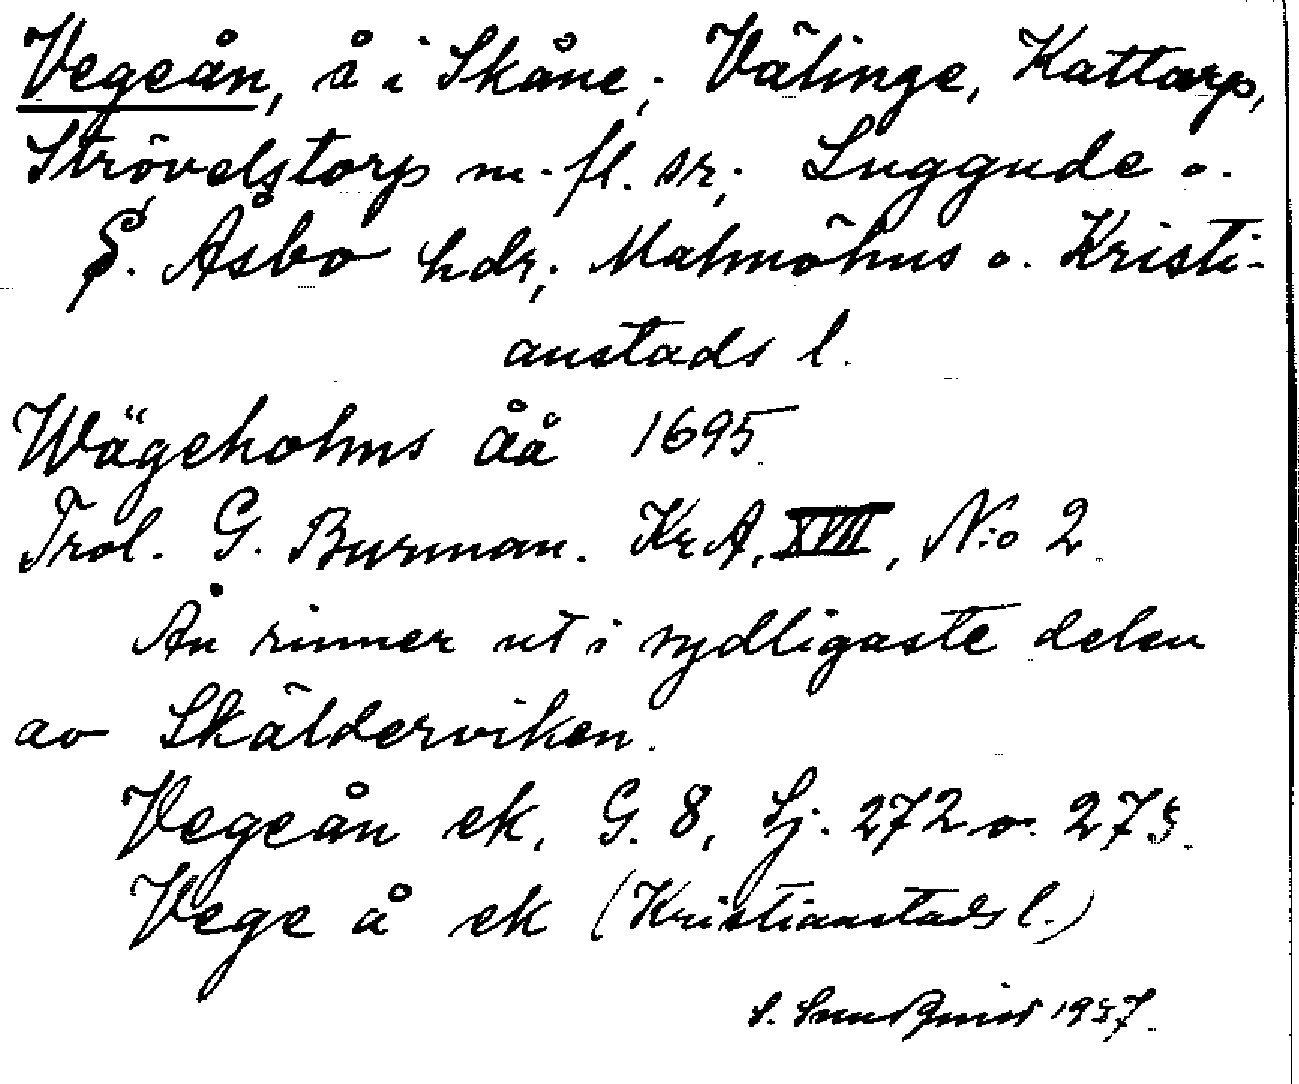 Vegeån, å i Skåne; Välinge, Kattarp,
Strövelstorp m. fl. sr; Luggude o.
S. Åsbo hdr; Malmöhus o. Kristi-
anstads l.
Wägeholms åå 1695
Trol. G. Burman. KrA, XVII, N:o 2
Ån rinner ut i sydligaste delen
av Skälderviken.
Vegeån ek, G. 8, Lj. 272 o. 275.
Vege å ek (Kristianstads l.)
S. 1937.